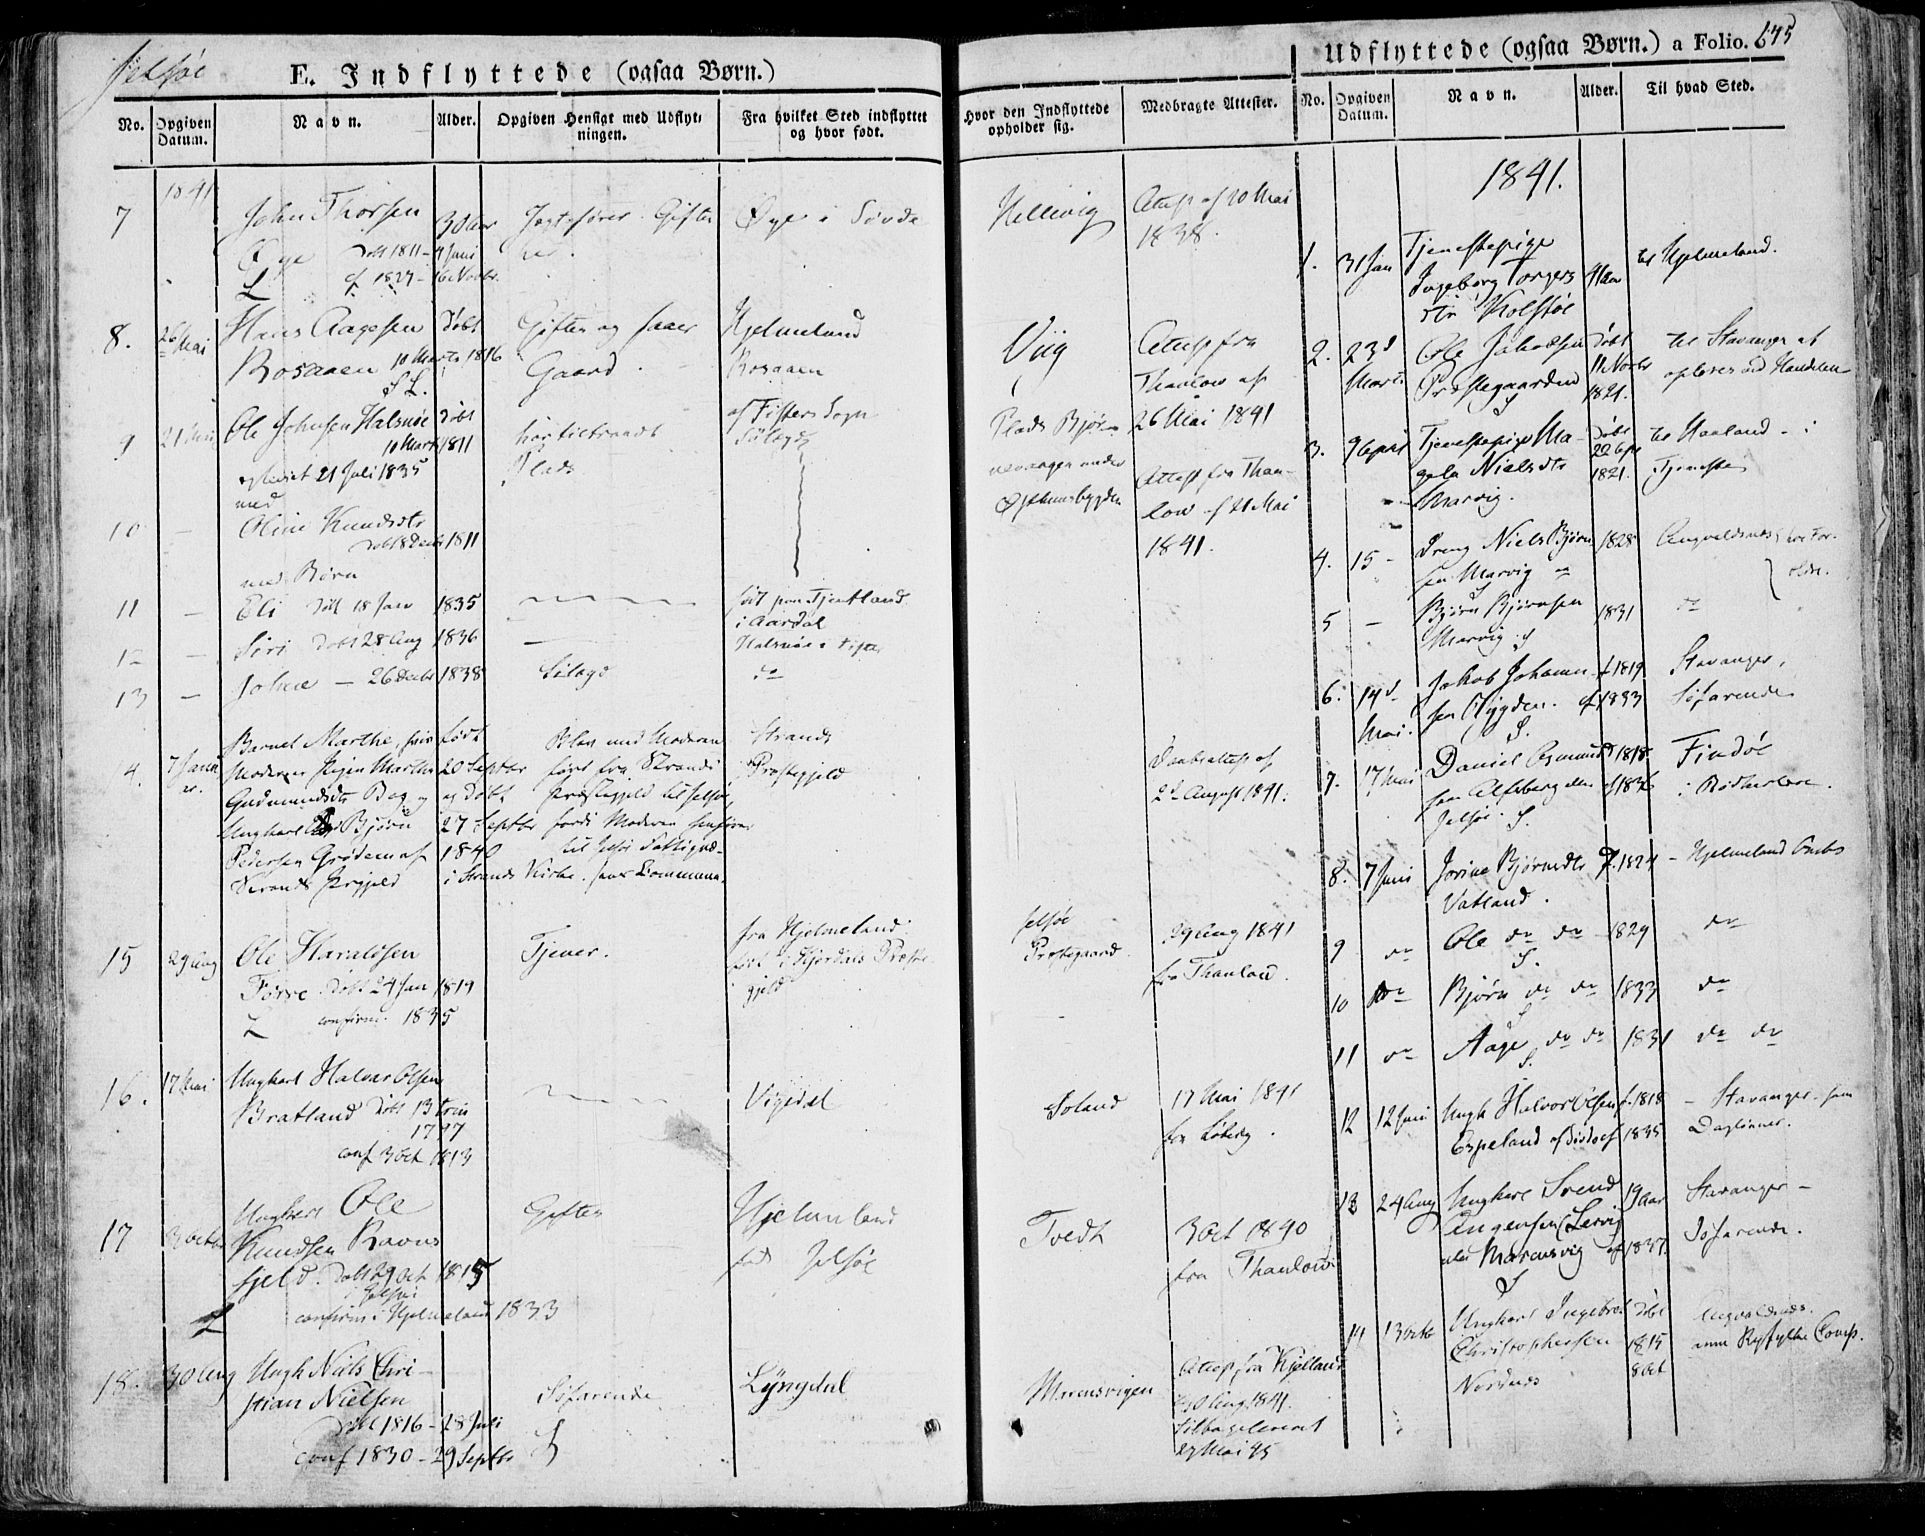 Jelsøe
E. Indflyttede (ogsaa Børn.)
No.
Opgiven Datum.
Navn.
Alder.
Opgiven Hensigt med Udflytningen.
Fra hvilket Sted indflyttet og hvor født.
1841
7
John Thorsen
Øye
30 Aar
Døbt 1811 – 4 Juni
cf 1827 –
L
Jagtefører. Gifter
her.
Øye i Søvde
8.
26 Mai
Hans Aagesen
Døbt
Rosaaen 10 Marts 1816
S L.
Gifter og faaer
Gaard.
Hjelmeland
Rosaaen
9
21 Mai
Ole Johnsen Halsnøe
Døbt
10 Marts 1811
21 Juli 1835
med
Plads
af Fister Sogn
10
–
Oline Knudsdtr
Døbt 8 Decbr 1811
med Børn
11
–
Eli Døbt 18 Jan 1835
Tjentland
i Aardal
12
–
Siri Døbt 28 Aug 1836
Halsnøe i Fister
13
–
Johne – 26 Decbr 1838
do
4.
7 Januar
Barnet Marthe, hvis
født
Moderen Pigen Marthe
20 Septbr
Gudmundsdtr Bog og
og døbt
Ungkarl Bjørn
27 Septbr
Pedersen Grødem af
1840
Strands Prgjeld
i Strands Kirke.
Blev med Moderen
ført fra Strands
Præstegjeld til Jelsøe,
fordi Moderen henhører
til Jelsøe Fattigvæ-
Strands
Præstegjeld
15
29 Aug
Ole Haraldsen
Førre Døbt 24 Jan 1819
L confirm. 1835
Tjener.
fra Hjelmeland.
født i Præste-
gjeld
16.
17 Mai
Ungkarl Halvor Olsen
Bratland Døbt 13 trin
1797
conf 3 Oct 1813
Vigedal
17
3 Octbr
Ungkarl Ole
Knudsen Ravns
fjeld. Døbt 29 Oct 1815
i Jelsøe
confirm i Hjelmeland 1833
L
Gifter
Hjelmeland
født Jelsøe
18.
30 Aug
Ungk Niels Chri-
stian Nielsen
Døbt 1816 – 28 Juli
conf 1830 – 29 Septbr
Søfarende
Lyngdal
Hvor den Indflyttede opholder sig.
Medbragte Attester.
Hellevig
Attest af 10 Mai
1838.
Viig
Attest fra
Thaulow af
26 Mai 1841
Plads Bjørne-
vevangen under
Østhuusbygden
Attest fra Thau-
low af 21 Mai
1841.
Daabsattest af
2de August 1841.
Jelsøe
Præstegaard
29 Aug 1841
fra Thaulow.
Soland
17 Mai 1841
fra
Tvedt
3 Oct 1840
fra Thaulow
Marensvigen
Attest fra Kjelland
30 Aug. 1841.
tilbageleveret
27 Mai 45
Udflyttede (ogsaa Børn.) a Folio.
645
No.
Opgiven Datum.
Navn.
Alder.
Til hvad Sted.
1841.
1.
31 Jan
Tjenestepige
Ingeborg Torgers
dtr Kolstøe
til Hjelmeland.
2.
23de
Marts
Ole Jakobsen
Præstegaarden
S
Døbt
11 Novbr
1821.
til Stavanger at
oplæres ved Handelen
3.
9 April
Tjenestepige Ma-
gela Nielsdtr
Marvig.
Døbt
1821.
til Haaland – i
Tjeneste
4.
15 –
Dreng Niels Bjørn
sen Marvig
S
1828
Augvaldsnæs hos For-
ældre.
5
–
Bjørn Bjørnsen
Marvig. S
1831
do
6.
14de
Mai.
Jakob Johannes
sen Bygden.
S.
f 1819
cf 1833
Stavanger,
Søfarende
7.
17 Mai
Daniel Asmunds
sen Alfsberg eller
Jelsøe. S.
1818.
cf 1836
Findøe
i Rødhuslære.
8.
7 Juni
Jorine Bjørnsdtr
Vatland.
f. 1824
– Hjelmeland Ombo
9
do
Ole do do
S.
1829
do
10
do
Bjørn do do
S
1833
do
11
do
Aage do do
S.
1831
do do
12
12 Juni
Ungk Halvor Olsen
Espeland
f. 1818
1835
– Stavanger. som
Dagleier.
13
24 Aug
Ungkarl Svend
Augensen Lervig
eller Marensvig
S
19 Aar
cf 1837.
Stavanger –
Søfarende.
14
13 Octbr
Ungkarl Ingebret
Christophersen
Nordnes
Døbt
1815
8 Oct
Augvaldsnæs.
Ryfylke Comp.